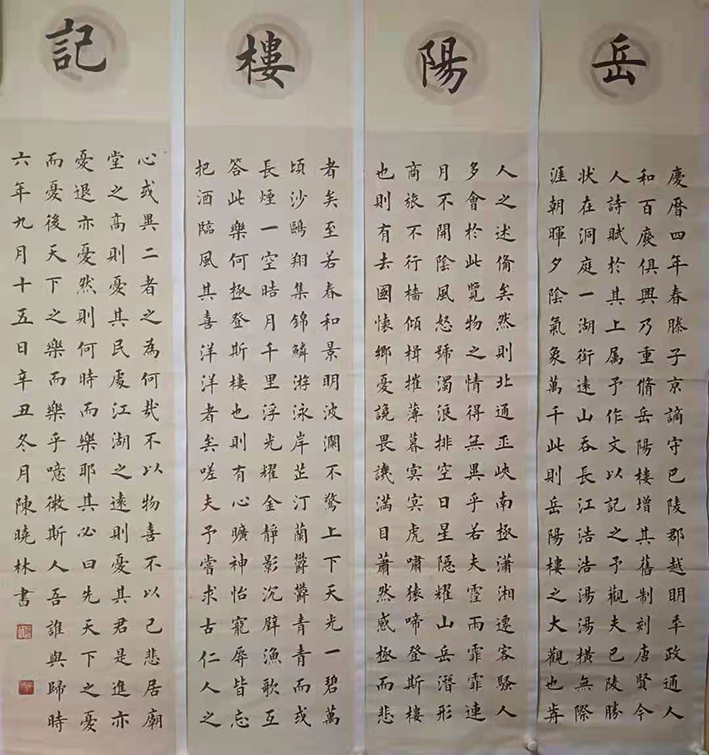 岳
慶曆四年春滕子京謫守巴陵郡越明年政通人
和百廢俱興乃重脩岳陽樓增其舊制刻唐賢今
人詩賦於其上属予作文以記之予觀夫巴陵勝
狀在洞庭一湖銜遠山吞長江浩浩湯湯橫無際
涯朝暉夕陰氣象萬千此則岳陽樓之大觀也歬
陽
人之述俻矣然則北通巫峽南極瀟湘遷客騷人
多會於此覽物之情得無異乎若夫霪雨霏霏連
月不開陰風怒號濁浪排空日星隱耀山岳潛形
商旅不行檣傾楫摧薄暮冥冥虎嘯猿啼登斯樓
也則有去國懷鄉憂讒畏譏滿目蕭然感極而悲
樓
者矣至若春和景明波瀾不驚上下天光一碧萬
頃沙鷗翔集錦鱗游泳岸芷汀蘭鬱鬱青青而或
長煙一空皓月千里浮光耀金靜影沉壁漁歌互
答此樂何極登斯樓也則有心曠神怡寵辱皆忘
把酒臨風其喜洋洋者矣嗟夫予嘗求古仁人之
記
心或異二者之為何哉不以物喜不以己悲居廟
堂之高則憂其民處江湖之遠則憂其君是進亦
憂退亦憂然則何時而樂耶其必曰先天下之憂
而憂後天下之樂而樂乎噫微斯人吾誰與歸時
六年九月十五日辛丑冬月陳曉林書